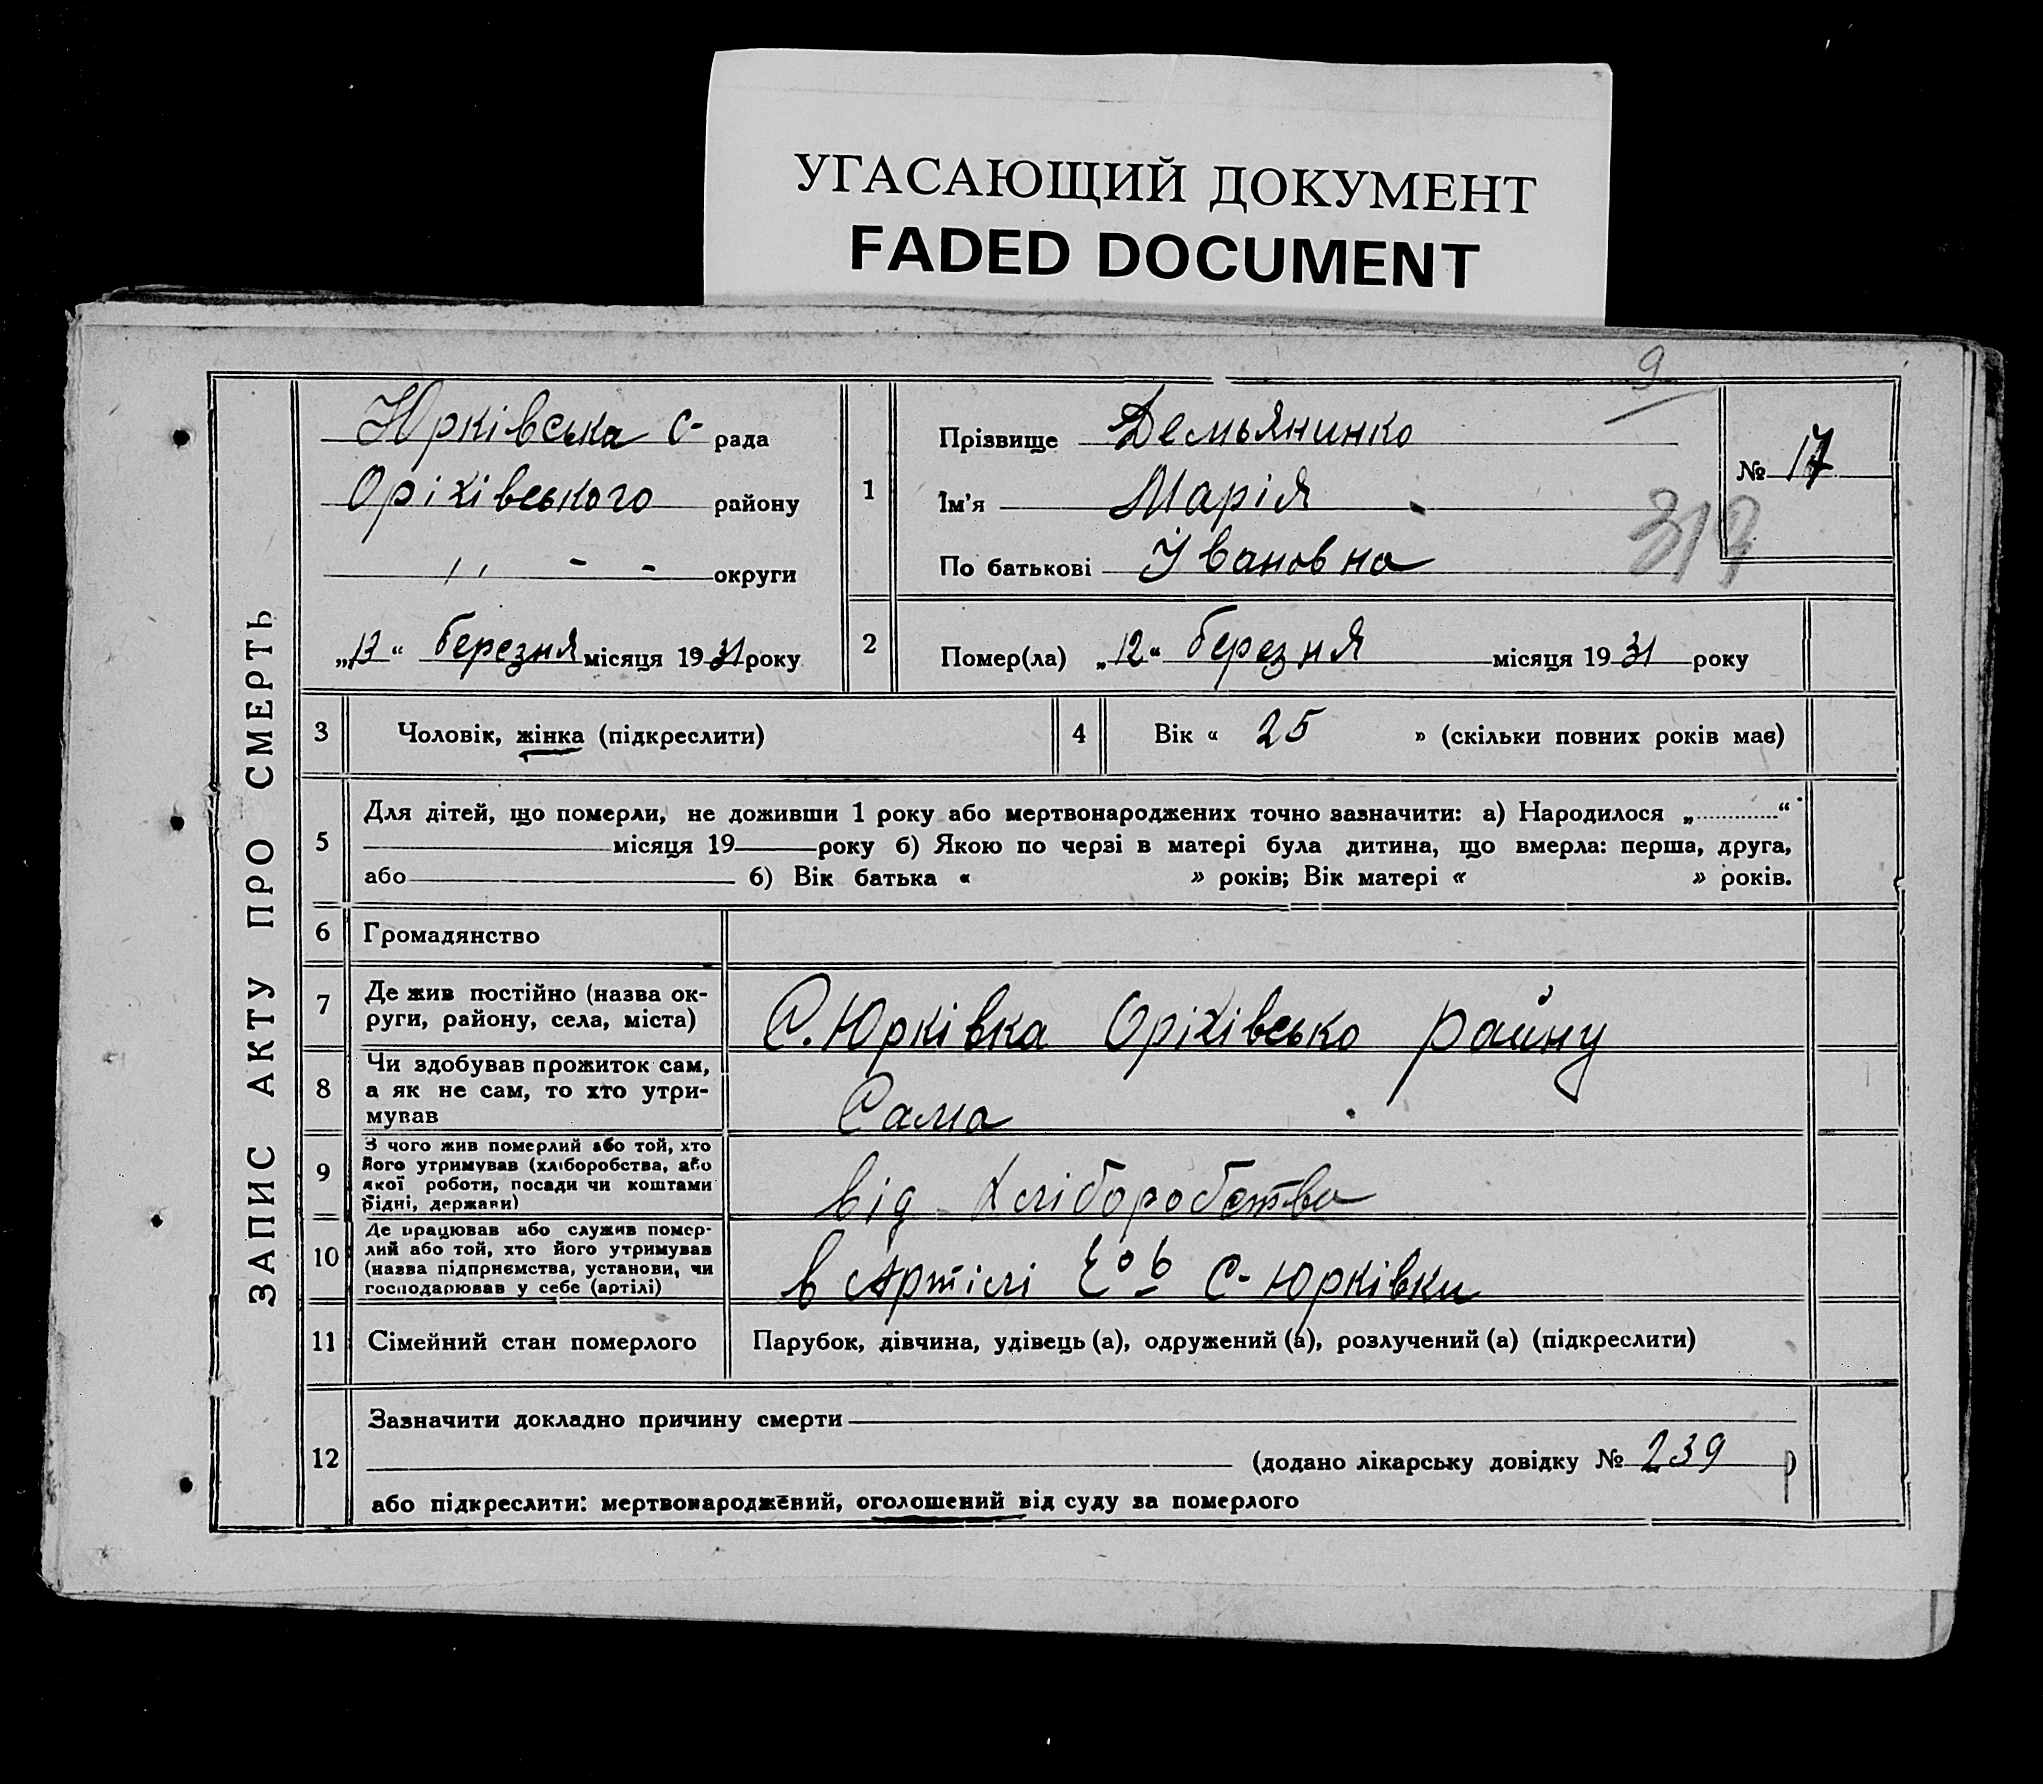 УГАСАЮЩИЙ ДОКУМЕНТ
FADED DOCUMENT
9
ЗАПИС АКТУ ПРО СМЕРТЬ
Юрківська с- рада
Оріхівського району
округи
„13“ березня місяця 1931 року
1
Прізвище Демьянинко
Ім'я Марія
По батькові Івановна
№ 17
317
2
Помер(ла) „12“ березня місяця 1931 року
3
Чоловік, жінка (підкреслити)
4
Вік « 25 » (скільки повних років має)
5
Для дітей, що померли, не доживши 1 року або мертвонароджених точно зазначити: а) Народилося „............“
місяця 19 року б) Якою по черзі в матері була дитина, що вмерла: перша, друга,
або б) Вік батька « » років; Вік матері « » років.
6
Громадянство
7
Де жив постійно (назва ок-
руги, району, села, міста)
С. Юрківка Оріхівсько району
8
Чи здобував прожиток сам,
а як не сам, то хто утри-
мував
Сама
9
З чого жив померлий або той, хто
його утримував (хліборобства, або
якої роботи, посади чи коштами
рідні, держави)
від хліборобства
10
Де працював або служив помер-
лий або той, хто його утримував
(назва підприємства, установи, чи
господарював у себе (артілі)
в Артілі с- Юрківки
11
Сімейний стан померлого
Парубок, дівчина, удівець (а), одружений (а), розлучений (а) (підкреслити)
12
Зазначити докладно причину смерти
(додано лікарську довідку № 239 )
або підкреслити: мертвонароджений, оголошений від суду за померлого